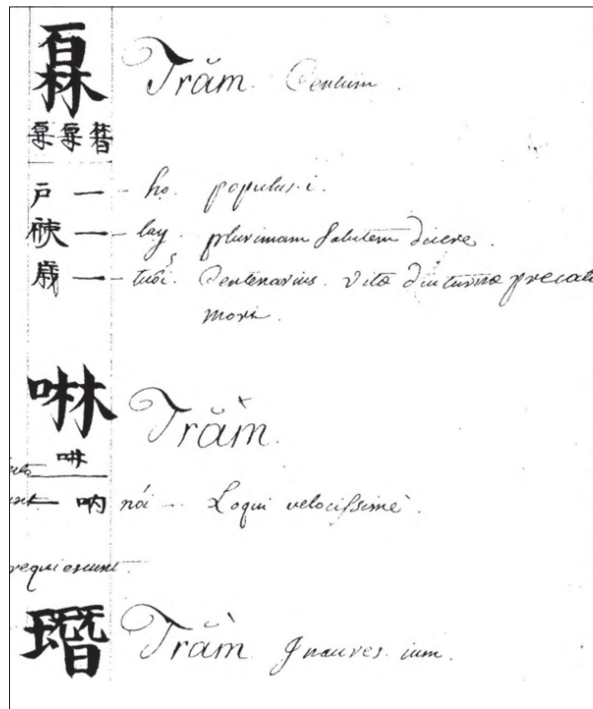 𤾓 Trăm. Centum.
戸 一 - họ. populus. i.
一 - lạy. plurimam salutem dicere.
歳 一 - tuổi. Centenarius. vitæ diuturnæ
啉 Trằm.
一 吶 nói — Loqui velocissimè.
requiescunt
Trằm Inaures. ium.